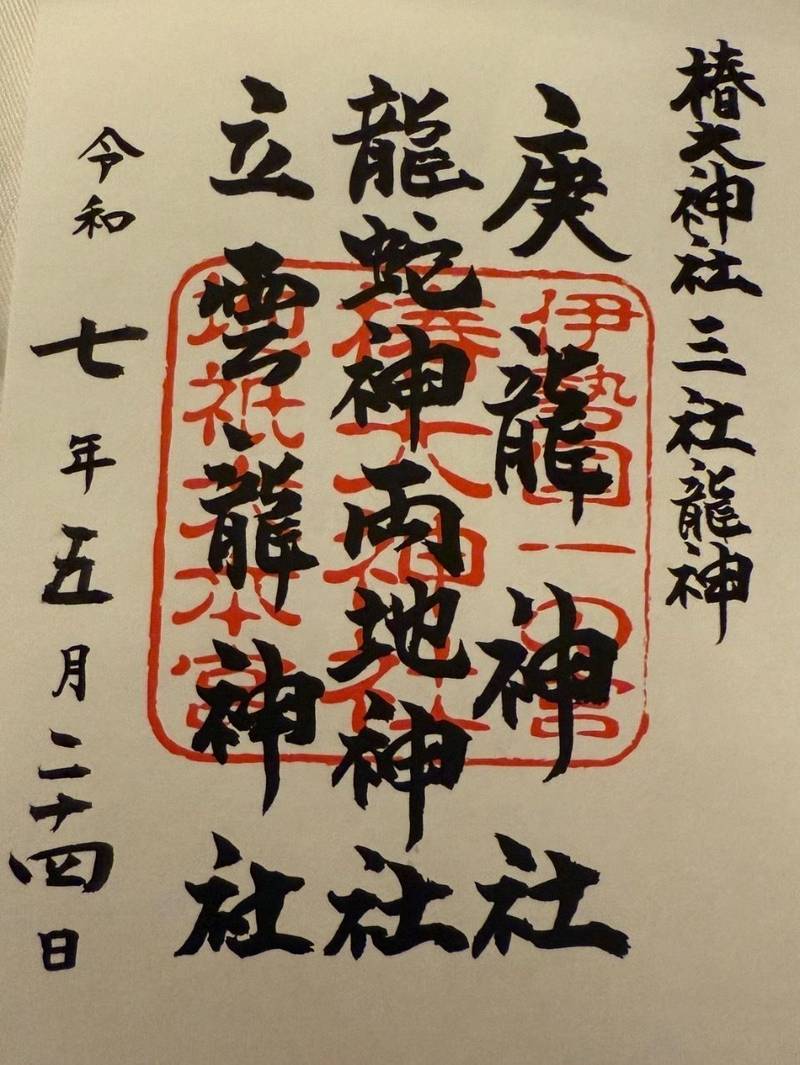 椿大神社三社龍神
庚龍神社
龍蛇神両地神社
立雲龍神社
令和七年五月二十四日
伊勢国一の宮
椿大神社
地祇大本宮